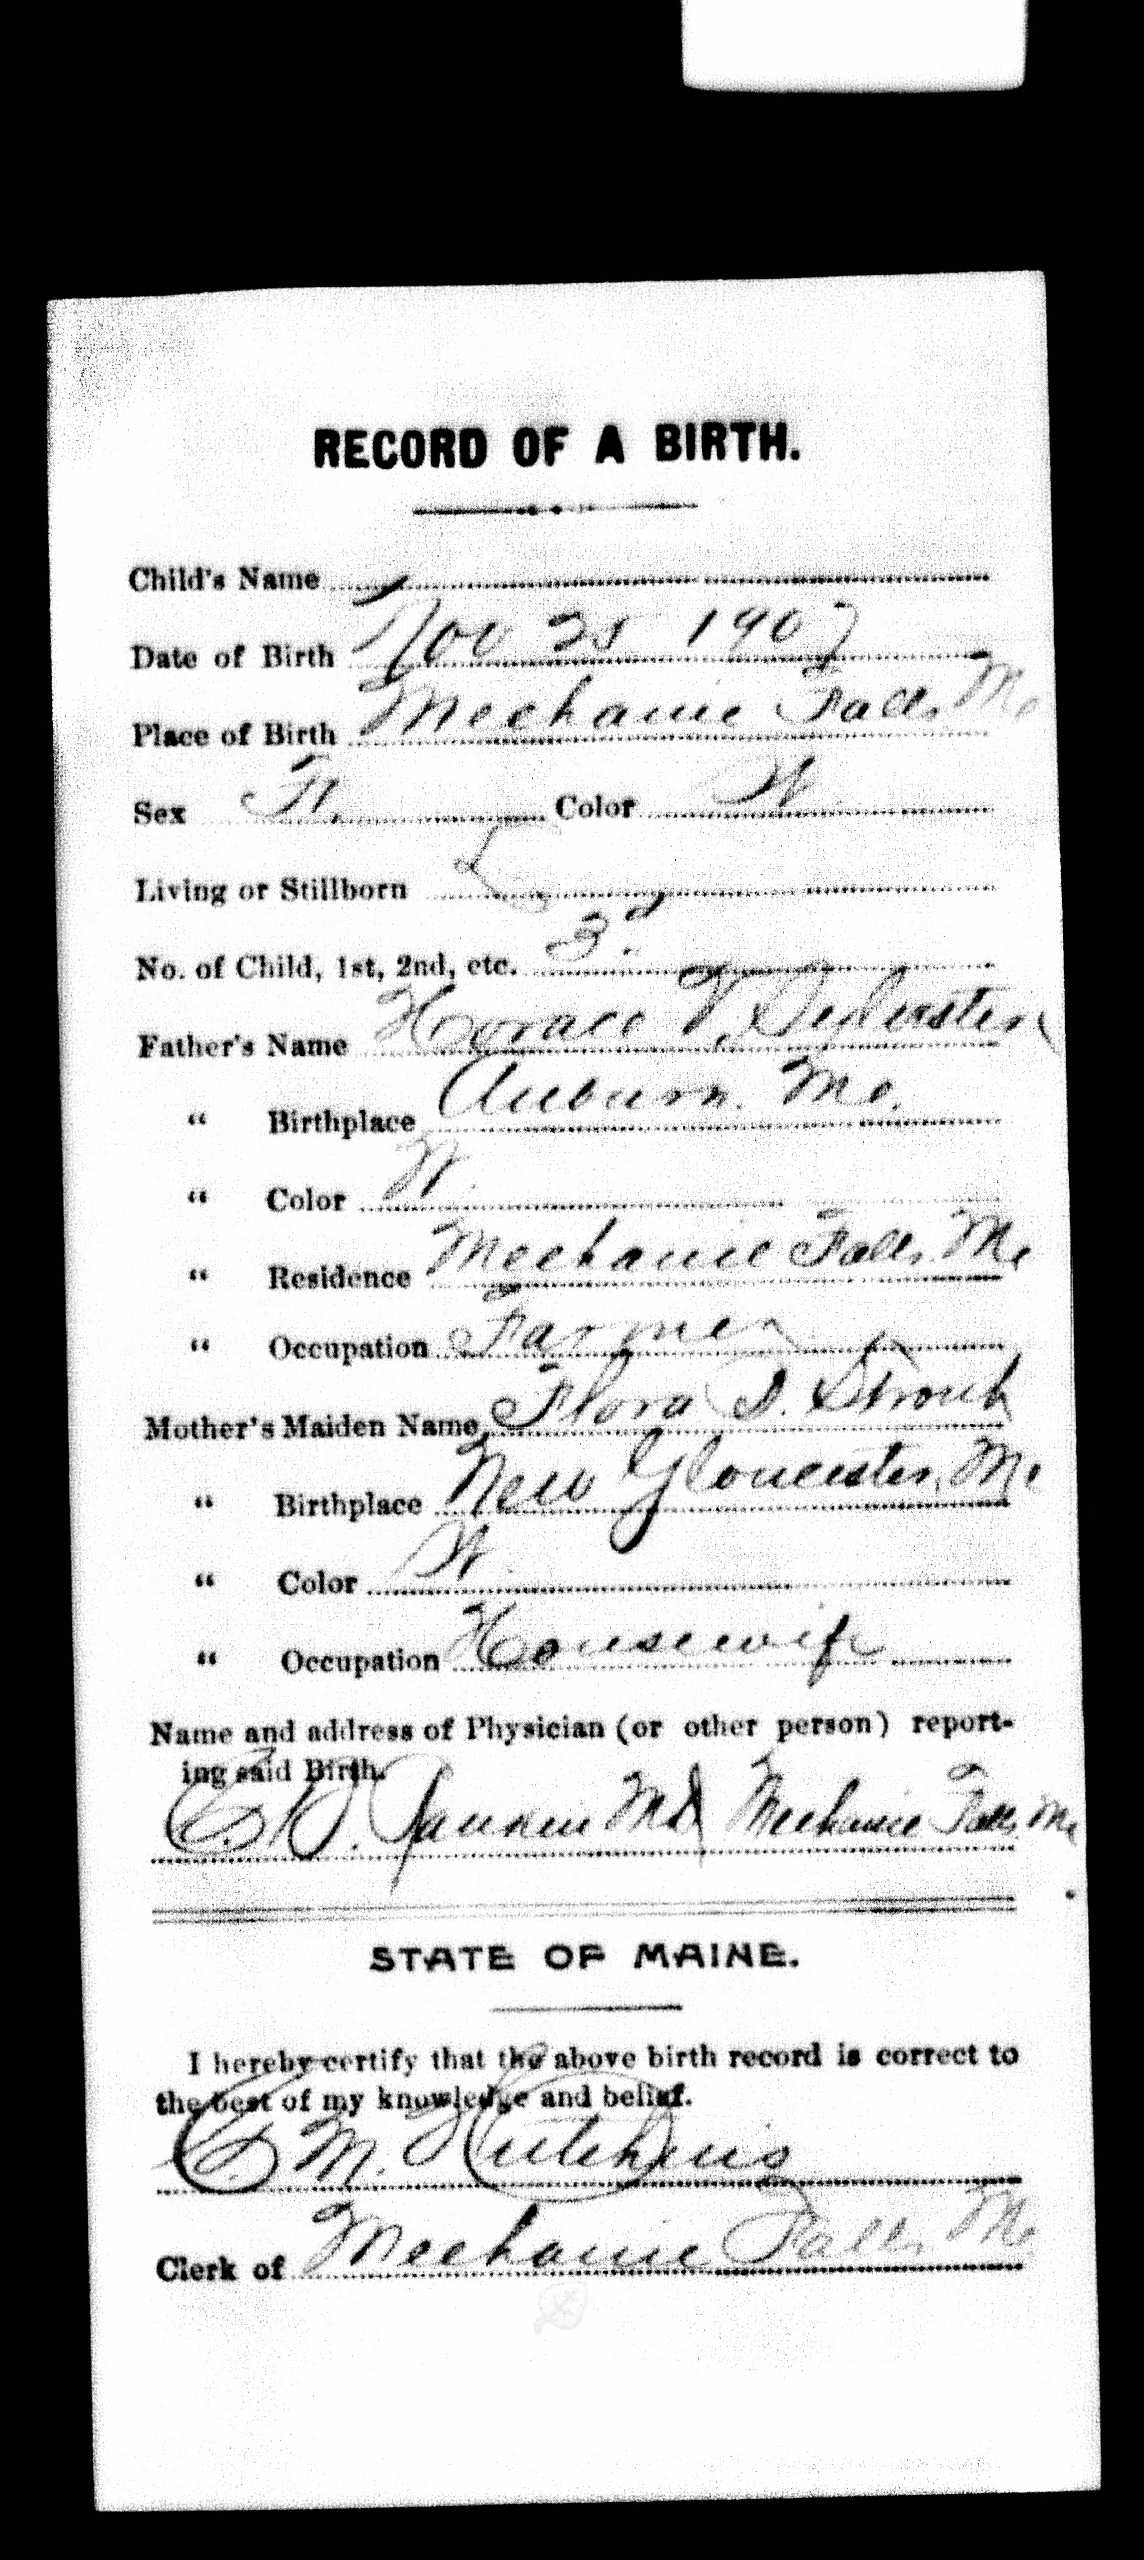 RECORD OF A BIRTH.
Child's Name
Date of Birth Nov 25 1907
Place of Birth Mechanic Falls Me
Sex F. Color W
Living or Stillborn L
No. of Child, 1st, 2nd, etc. 3d
Father's Name Horace V.
" Birthplace Auburn. Me.
" Color W.
" Residence Mechanic Falls, Me
" Occupation Farmer
Mother's Maiden Name Flora D. Strout
" Birthplace New Gloucester, Me
" Color W.
" Occupation Housewife
Name and address of Physician (or other person) report-
ing said Birth.
MD Mechanic Falls, Me
STATE OF MAINE.
I hereby certify that the above birth record is correct to
the best of my knowledge and belief.
M. Hutchins
Clerk of Mechanic Falls, Me